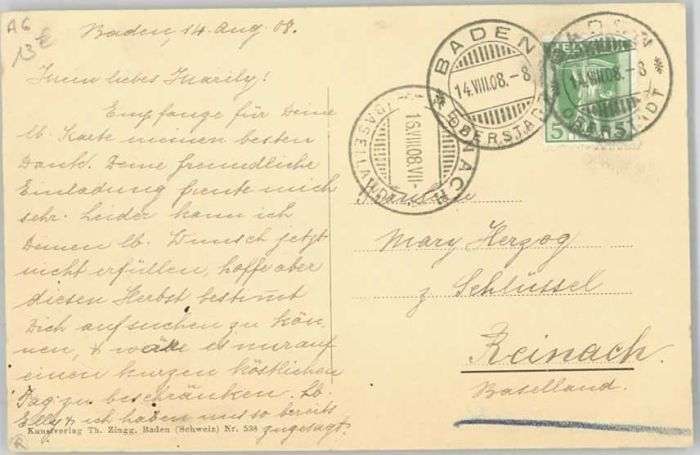 A6
13€
Baden, 14. Aug. 08.
Mein liebes Maril​y!
Empfange für Deine
lb. Karte meinen besten
Dank. Deine freundliche
Einladung freute mich
sehr. Leider kann ich
Deinen lb. Wunsch jetzt
nicht erfüllen, hoffe aber
diesen Herbst bestimt
Dich aufsuchen zu kön,
nen, & wäre es nur auf
einen kurzen köstlichen
Tag zu beschränken. Lb.
Elly & ich haben uns so bereits
zugesagt.
Kunstverlag Th. Zingg, Baden (Schweiz) Nr. 538
BADEN
14.VIII.08.-8
OBERSTADT
BADEN
14.VIII.08.-8
OBERSTADT
HELVETIA
5 5
REINACH
15.VIII.08.VII-
(BASELLAND)
Fräulein
Mary Herzog
z Schlüssel
Reinach.
Baselland.